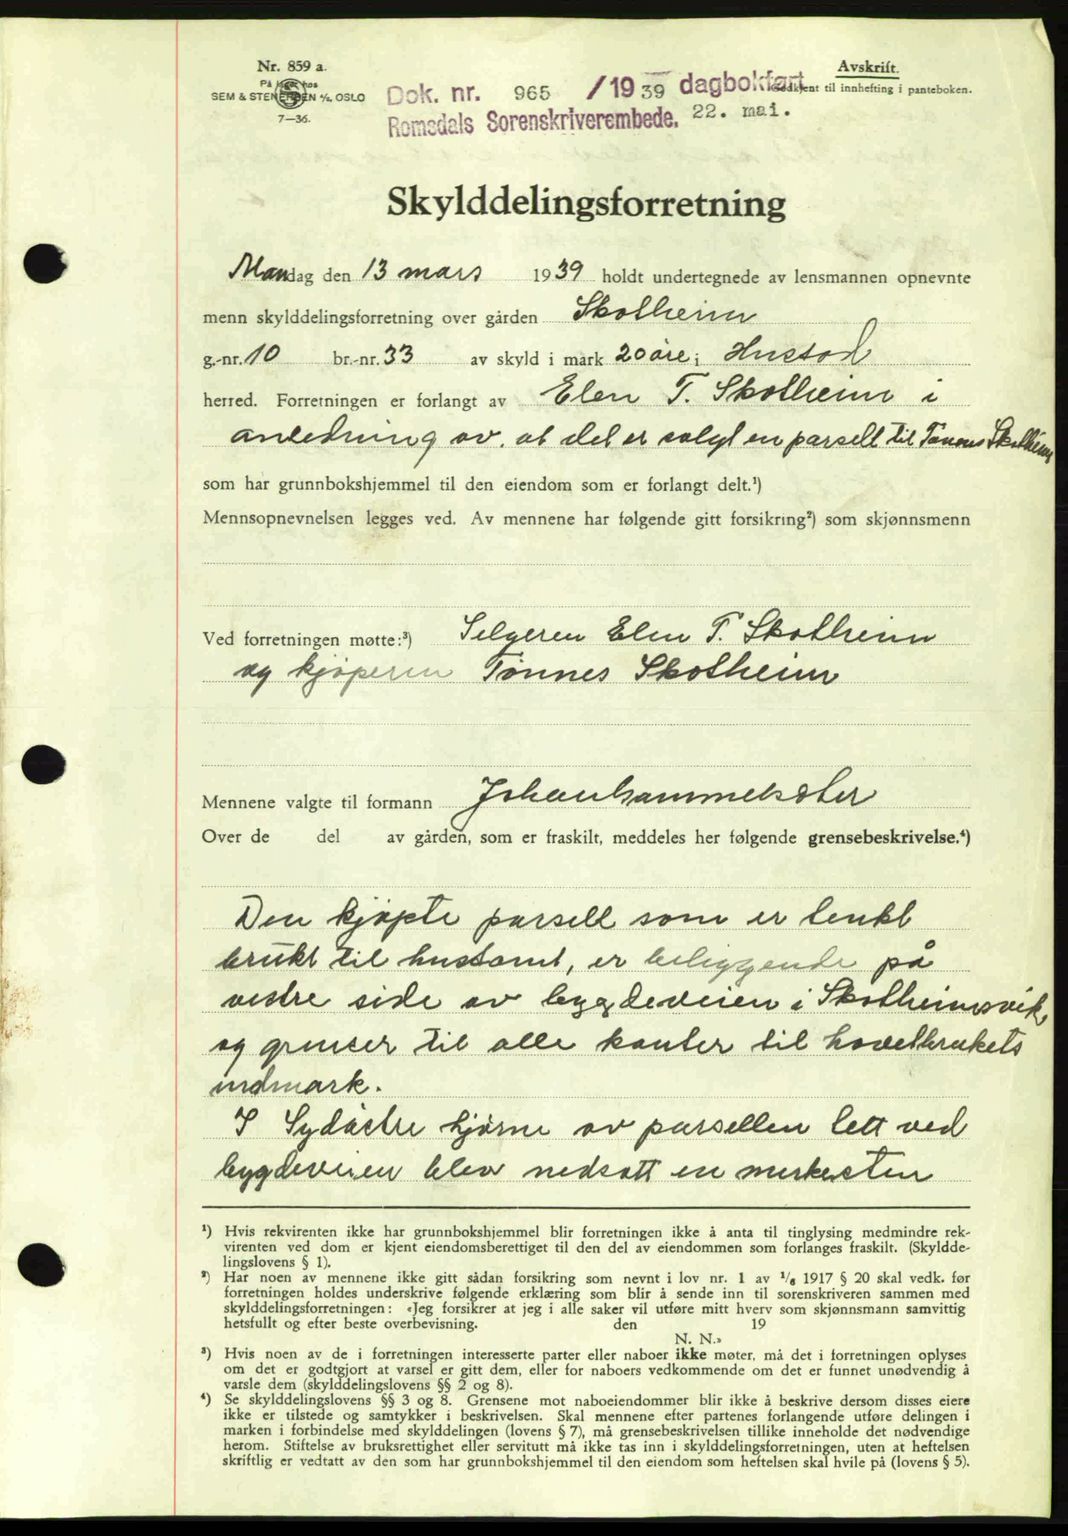 Nr. 859 a.
På lager hos
SEM & STENERSEN A/S, OSLO
7—36.
Dok. nr. 965 /1939 dagbokført
Romsdals Sorenskriverembede. 22. mai.
Avskrift.
Godkjent til innhefting i panteboken.
Skylddelingsforretning
Mandag den 13 mars 1939 holdt undertegnede av lensmannen opnevnte
menn skylddelingsforretning over gården Skotheim
g.-nr. 10 br.-nr. 33 av skyld i mark 20 øre i Hustad
herred. Forretningen er forlangt av Elen T. Skotheim i
anledning av, at det er solgt en parsell til Tønnes Skotheim
som har grunnbokshjemmel til den eiendom som er forlangt delt.¹)
Mennsopnevnelsen legges ved. Av mennene har følgende gitt forsikring²) som skjønnsmenn
Ved forretningen møtte:³) Selgeren Elen T. Skotheim
og kjøperen Tønnes Skotheim
Mennene valgte til formann Johan Hammelsæter
Over de del av gården, som er fraskilt, meddeles her følgende grensebeskrivelse.⁴)
Den kjøpte parsell som er tenkt
brukt til hustomt, er beliggende på
vestre side av bygdeveien i Skotheimsvik
og grenser til alle kanter til hovetbrukets
indmark.
I Sydøstre hjørne av parsellen tett ved
bygdeveien blev nedsatt en merkesten
¹) Hvis rekvirenten ikke har grunnbokshjemmel blir forretningen ikke å anta til tinglysing medmindre rek-
virenten ved dom er kjent eiendomsberettiget til den del av eiendommen som forlanges fraskilt. (Skyldde-
lingslovens § 1).
²) Har noen av mennene ikke gitt sådan forsikring som nevnt i lov nr. 1 av 1/6 1917 § 20 skal vedk. før
forretningen holdes underskrive følgende erklæring som blir å sende inn til sorenskriveren sammen med
skylddelingsforretningen: «Jeg forsikrer at jeg i alle saker vil utføre mitt hverv som skjønnsmann samvittig
hetsfullt og efter beste overbevisning. den 19
N. N.»
³) Hvis noen av de i forretningen interesserte parter eller naboer ikke møter, må det i forretningen oplyses
om det er godtgjort at varsel er gitt dem, eller for naboers vedkommende om det er funnet unødvendig å
varsle dem (skylddelingslovens §§ 2 og 8).
⁴) Se skylddelingslovens §§ 3 og 8. Grensene mot naboeiendommer blir ikke å beskrive dersom disses eiere
ikke er tilstede og samtykker i beskrivelsen. Skal mennene efter partenes forlangende utføre delingen i
marken i forbindelse med skylddelingen (lovens § 7), må grensebeskrivelsen tillike inneholde det nødvendige
herom. Stiftelse av bruksrettighet eller servitutt må ikke tas inn i skylddelingsforretningen, uten at heftelsen
skriftlig er vedtatt av den som har grunnbokshjemmel til den eiendom som heftelsen skal hvile på (lovens § 5).